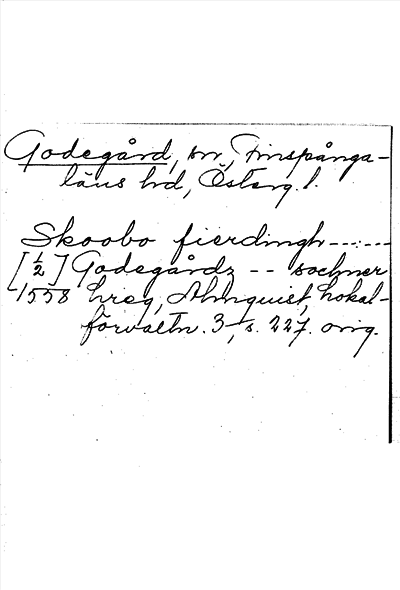 Godegård, sn, Finspånga-
läns hd, Österg. l.
Skoobo fierdingh -----
[½] Godegårdz -- sochner
1558 hreg, Almquist, Lokal-
förvaltn. 3, s. 227. orig.